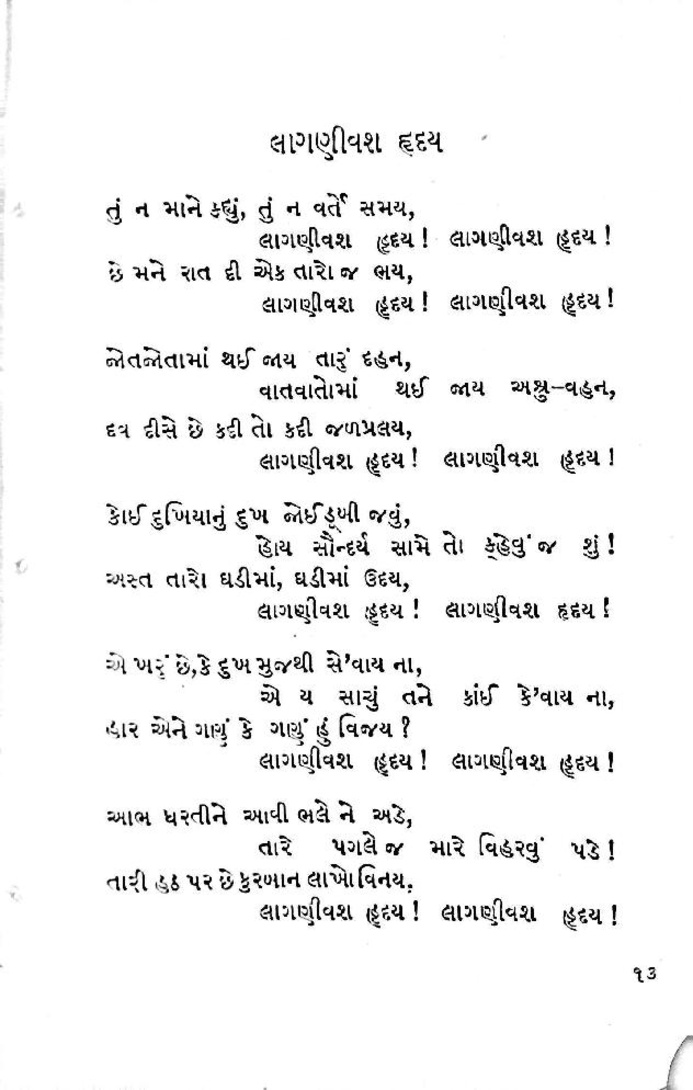 લાગણીવશ હૃદય
તું ન માને કહ્યું, તું ન વર્તે સમય,
લાગણીવશ હૃદય ! લાગણીવશ હૃદય !
છે મને રાત દી એક તારો જ ભય,
લાગણીવશ હૃદય ! લાગણીવશ હૃદય !
જોતજોતામાં થઈ જાય તારું દહન,
વાતવાતોમાં થઈ જાય અશ્રુ-વહન,
દવ દીસે છે કદી તો કદી જળપ્રલય,
લાગણીવશ હૃદય ! લાગણીવશ હૃદય !
કોઈ દુખિયાનું દુખ જોઈ ડૂબી જવું,
હોય સૌન્દર્ય સામે તો કહેવું જ શું !
અસ્ત તારો ઘડીમાં, ઘડીમાં ઉદય,
લાગણીવશ હૃદય ! લાગણીવશ હૃદય !
એ ખરું છે, કે દુખ મુજથી સે'વાય ના,
એ ય સાચું તને કાંઈ કે'વાય ના,
હાર એને ગણું કે ગણું હું વિજય ?
લાગણીવશ હૃદય ! લાગણીવશ હૃદય !
આભ ધરતીને આવી ભલે ને અડે,
તારે પગલે જ મારે વિહરવું પડે !
તારી હઠ પર છે કુરબાન લાખો વિનય,
લાગણીવશ હૃદય ! લાગણીવશ હૃદય !
૧૩